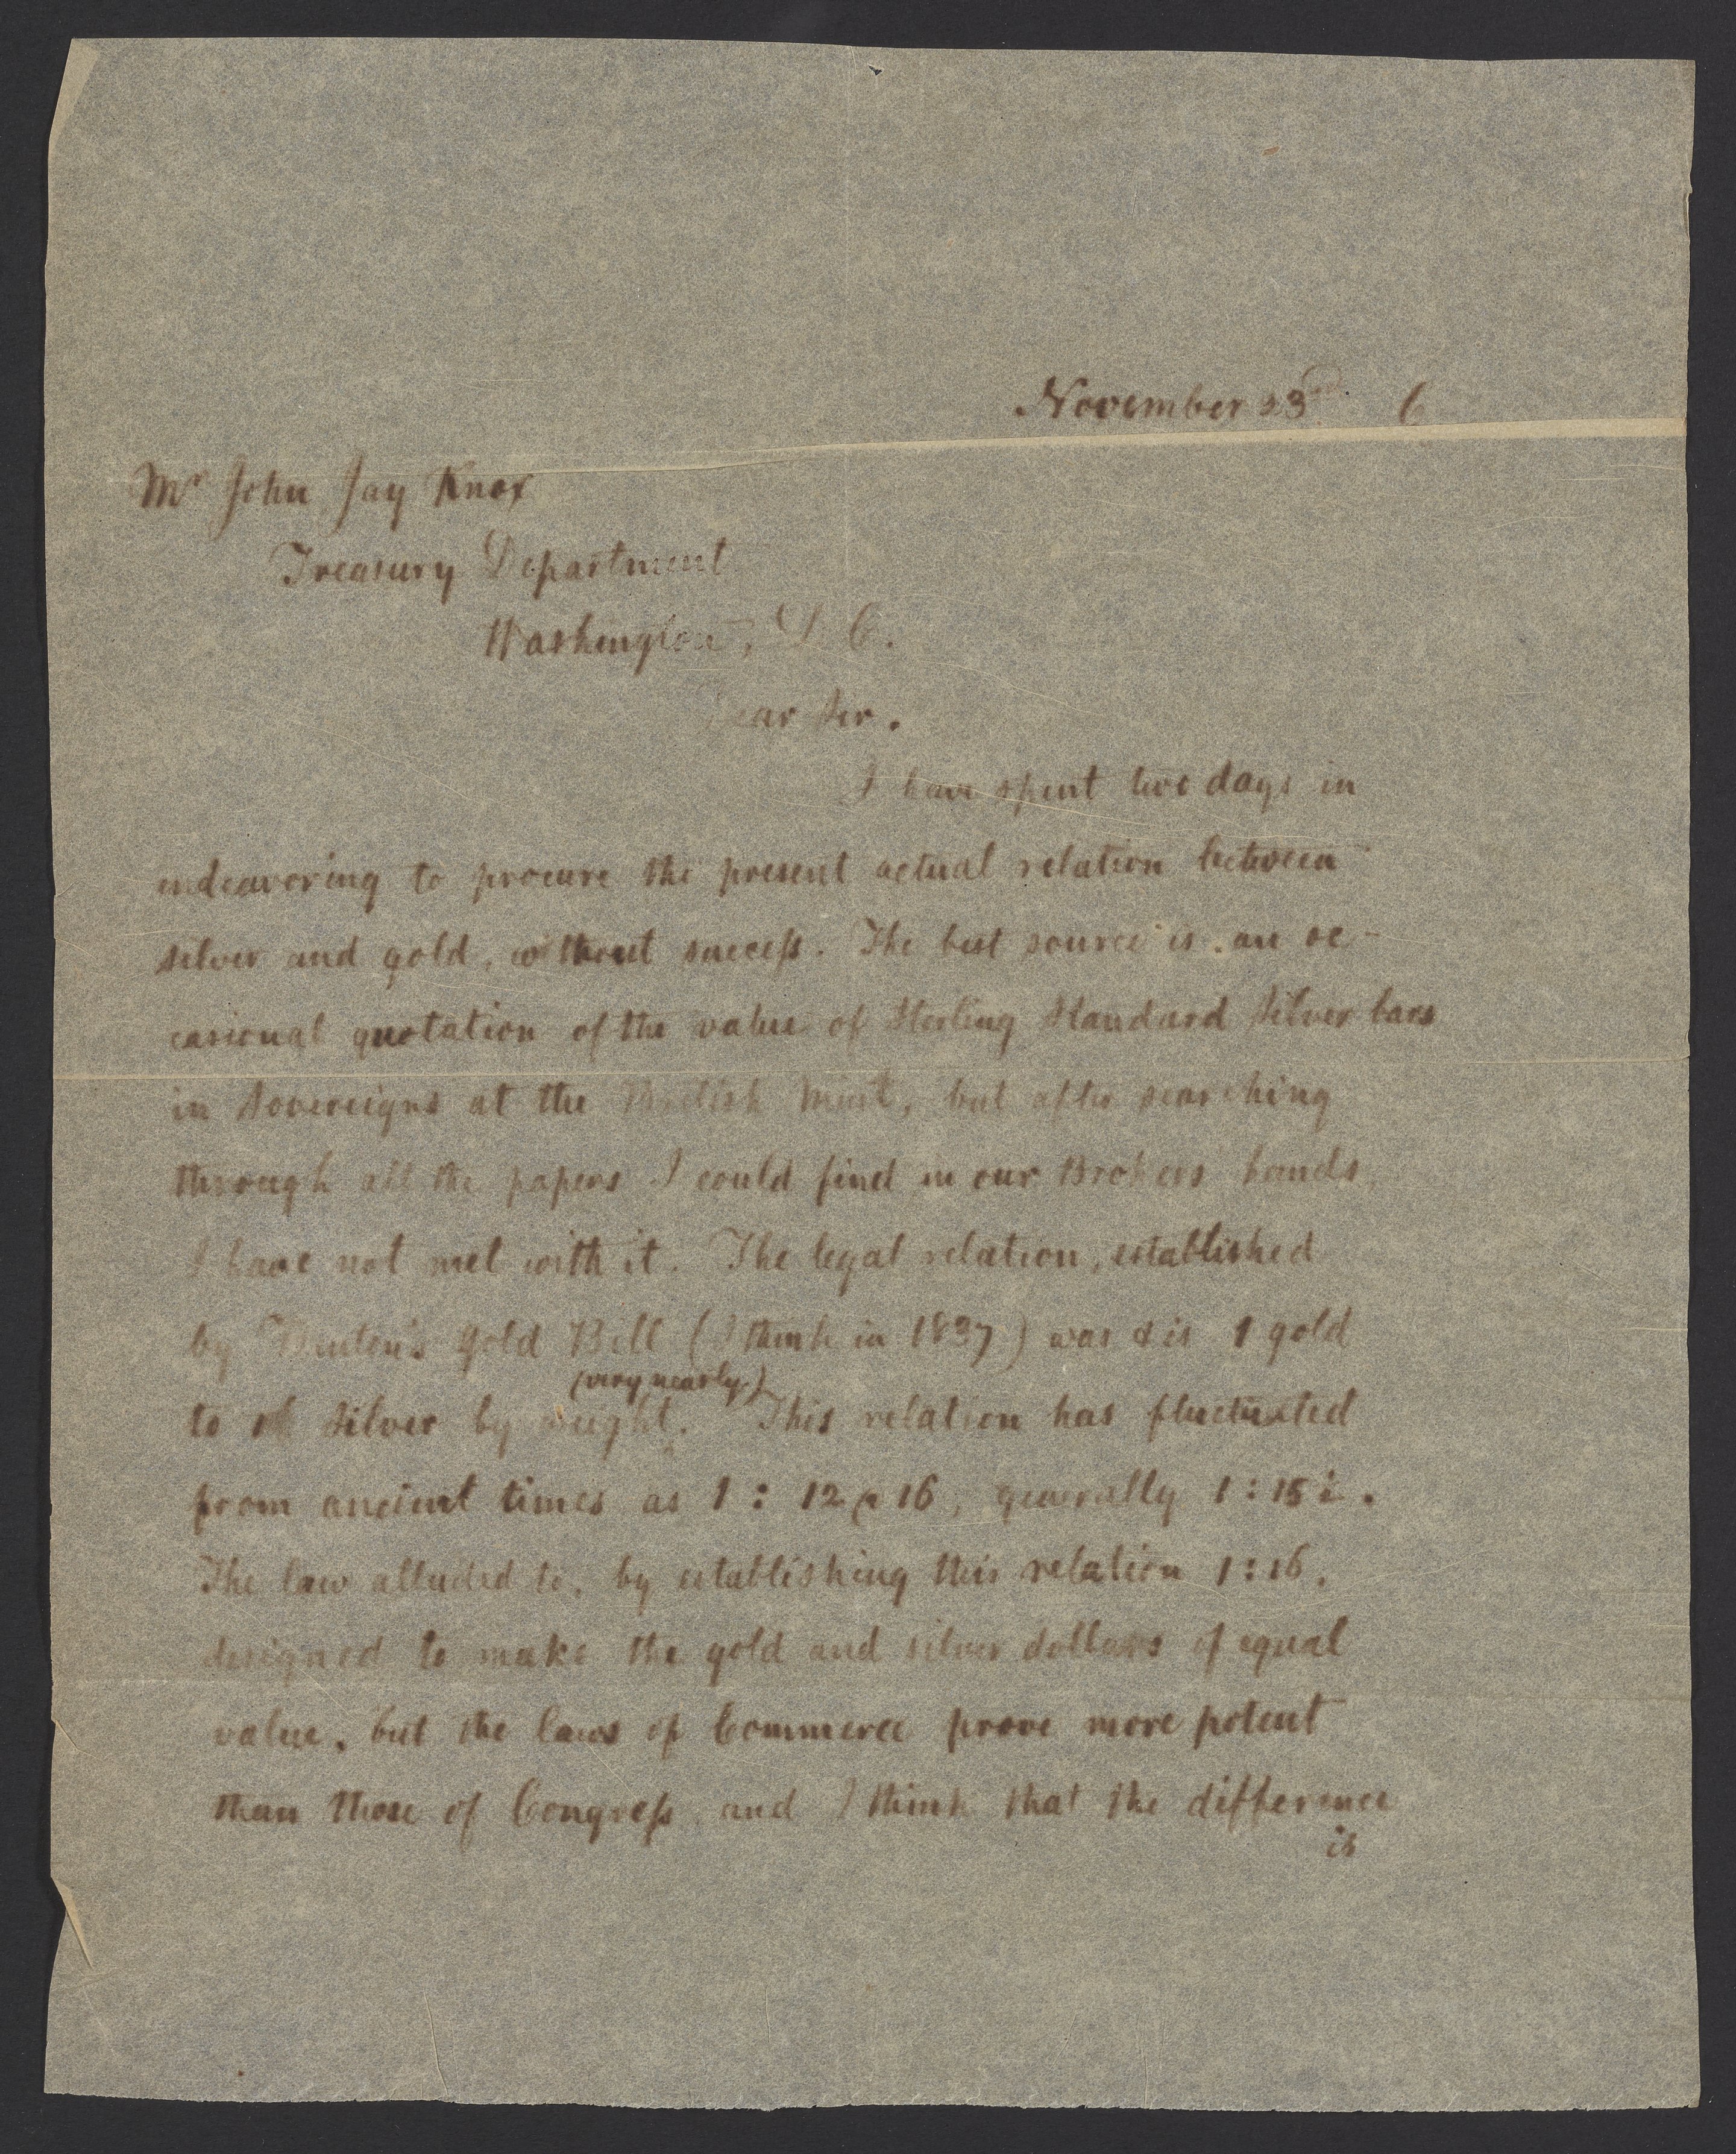 November 23d 6
Mr John Jay Knox
Treasury Department
Washington, D. C.
Dear Sir.
I have spent two days in
endeavoring to procure the present actual relation between
silver and gold, without success. The best source is an oc-
casional quotation of the value of Sterling Standard Silver bars
in Sovereigns at the British Mint, but after searching
through all the papers I could find in our Brokers hands
I have not met with it. The legal relation, established
by Benton's Gold Bill (I think in 1837) was & is 1 gold
(very nearly)
to 16 silver by weight. This relation has fluctuated
from ancient times as 1 : 12 @ 16, generally 1 : 15½.
The law alluded to, by establishing this relation 1 : 16,
designed to make the gold and silver dollars of equal
value, but the laws of Commerce prove more potent
than those of Congress, and I think that the difference
is